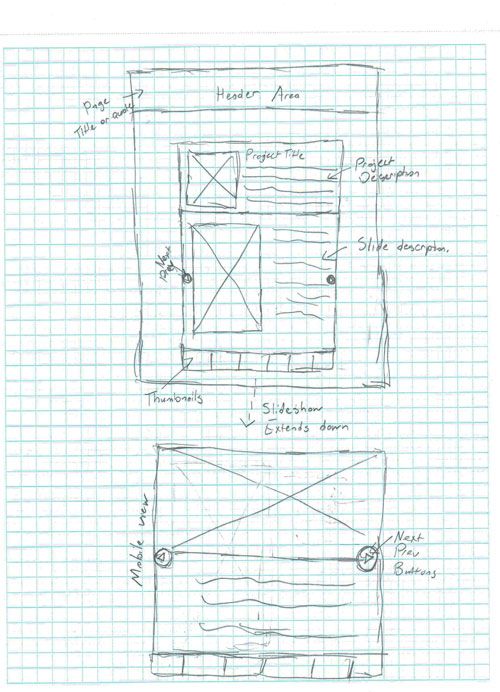 Header Area
Page
Title or
Project Title
Project
Description
Slide description.
Next
Thumbnails
Slideshow
Extends down
Mobile view
Next
Prev
Buttons